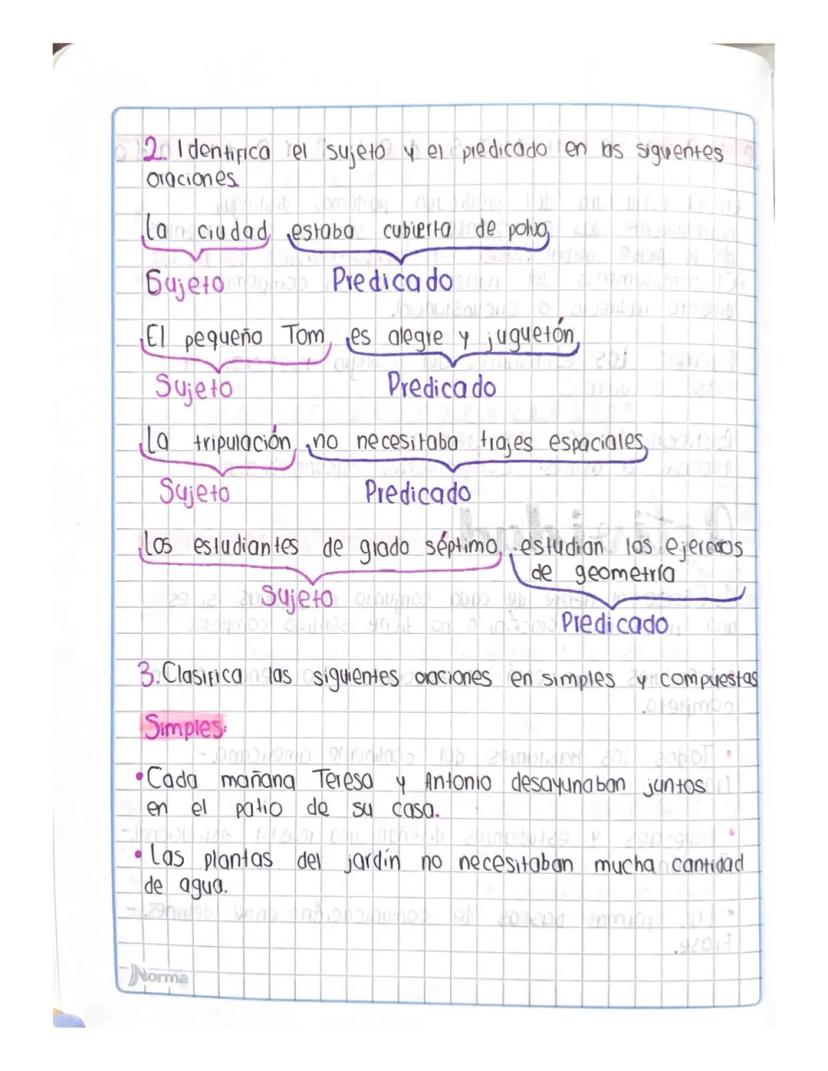 2. Identifica el sujeto y el predicado en las siguientes
oraciones
La ciudad estaba cubierta de polvo
Sujeto Predicado
El pequeño Tom es alegre y juguetón
Sujeto Predicado
La tripulación no necesitaba trajes espaciales
Sujeto Predicado
Los estudiantes de grado séptimo estudian los ejercicios
de geometría
Sujeto
Predicado
3. Clasifica las siguientes oraciones en simples y compuestas
Simples:
• Cada mañana Teresa y Antonio desayunaban juntos
en el patio de su casa.
• Las plantas del jardín no necesitaban mucha cantidad
de agua.
Norma